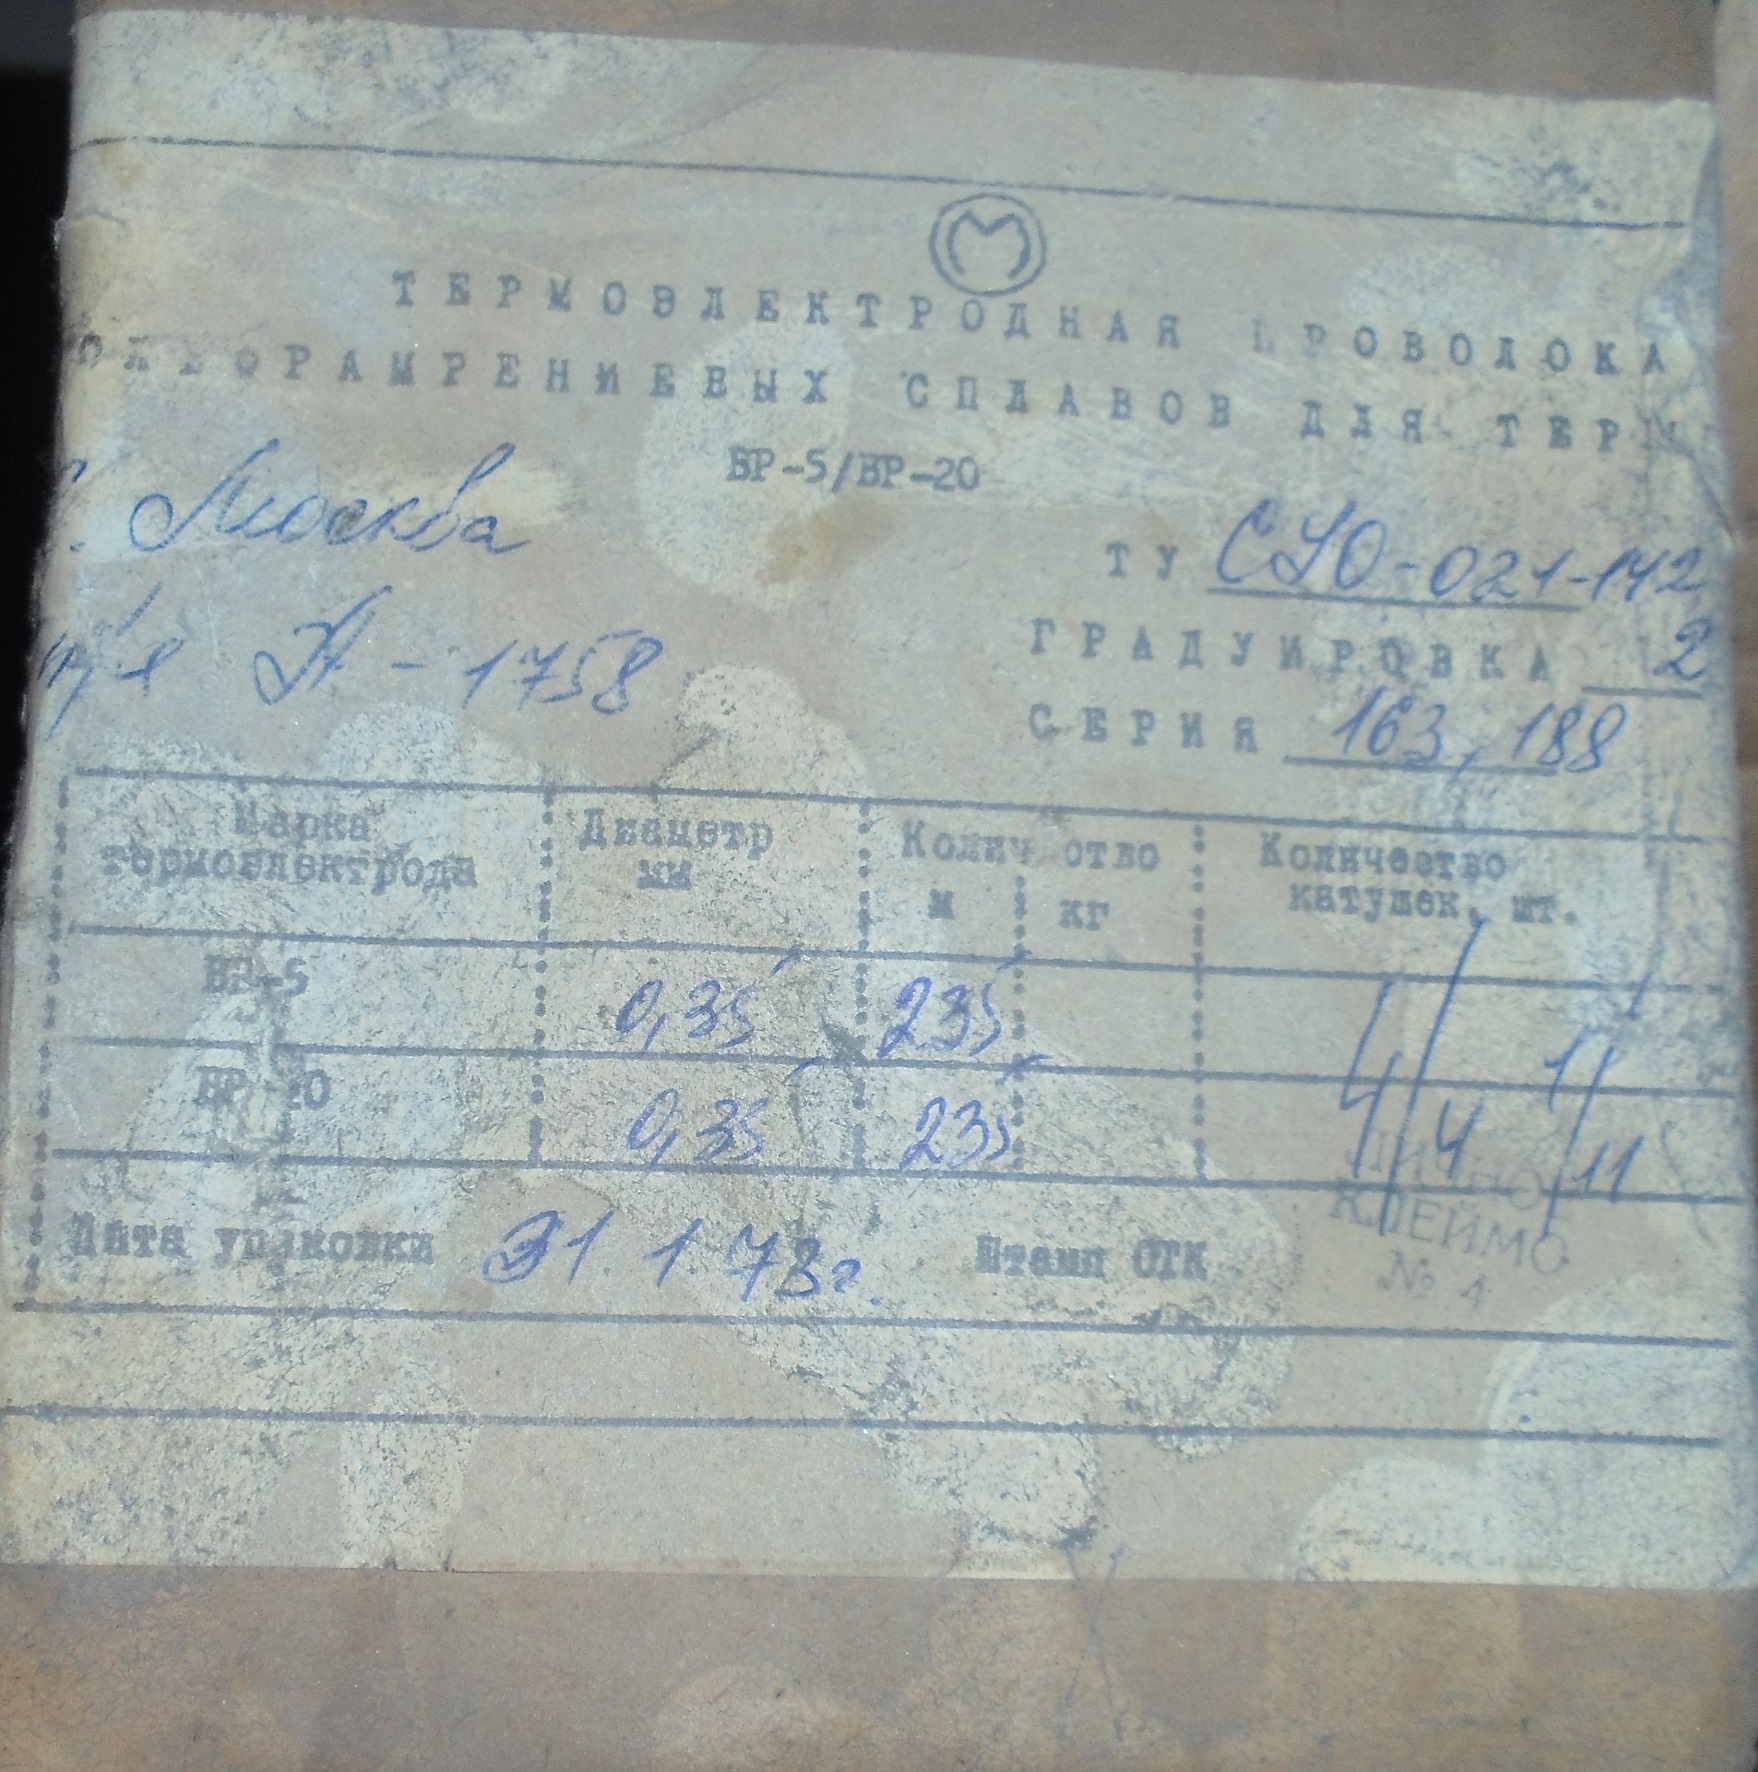 М
ТЕРМОЭЛЕКТРОДНАЯ ПРОВОЛОКА
ОЛЬФРАМРЕНИЕВЫХ СПЛАВОВ ДЛЯ ТЕРМ
ВР-5/ВР-20
г. Москва
п/я А-1758
ТУ СЮ-021-142
ГРАДУИРОВКА 2
СЕРИЯ 163, 188
Марка термоэлектрода Диаметр мм Количество м кг Количество катушек, шт.
ВР-5 0,35 235 4/ 11
ВР-20 0,35 235 4/4 11/11
Дата упаковки 31.1.73г. Штамп ОТК
ЛИЧНОЕ
КЛЕЙМО
№ 4